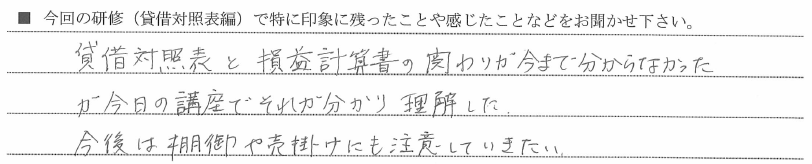 ■ 今回の研修（貸借対照表編）で特に印象に残ったことや感じたことなどをお聞かせ下さい。
貸借対照表と損益計算書の関わりが今まで分からなかった
が今日の講座でそれが分かり理解した.
今後は棚御や売掛けにも注意していきたい.